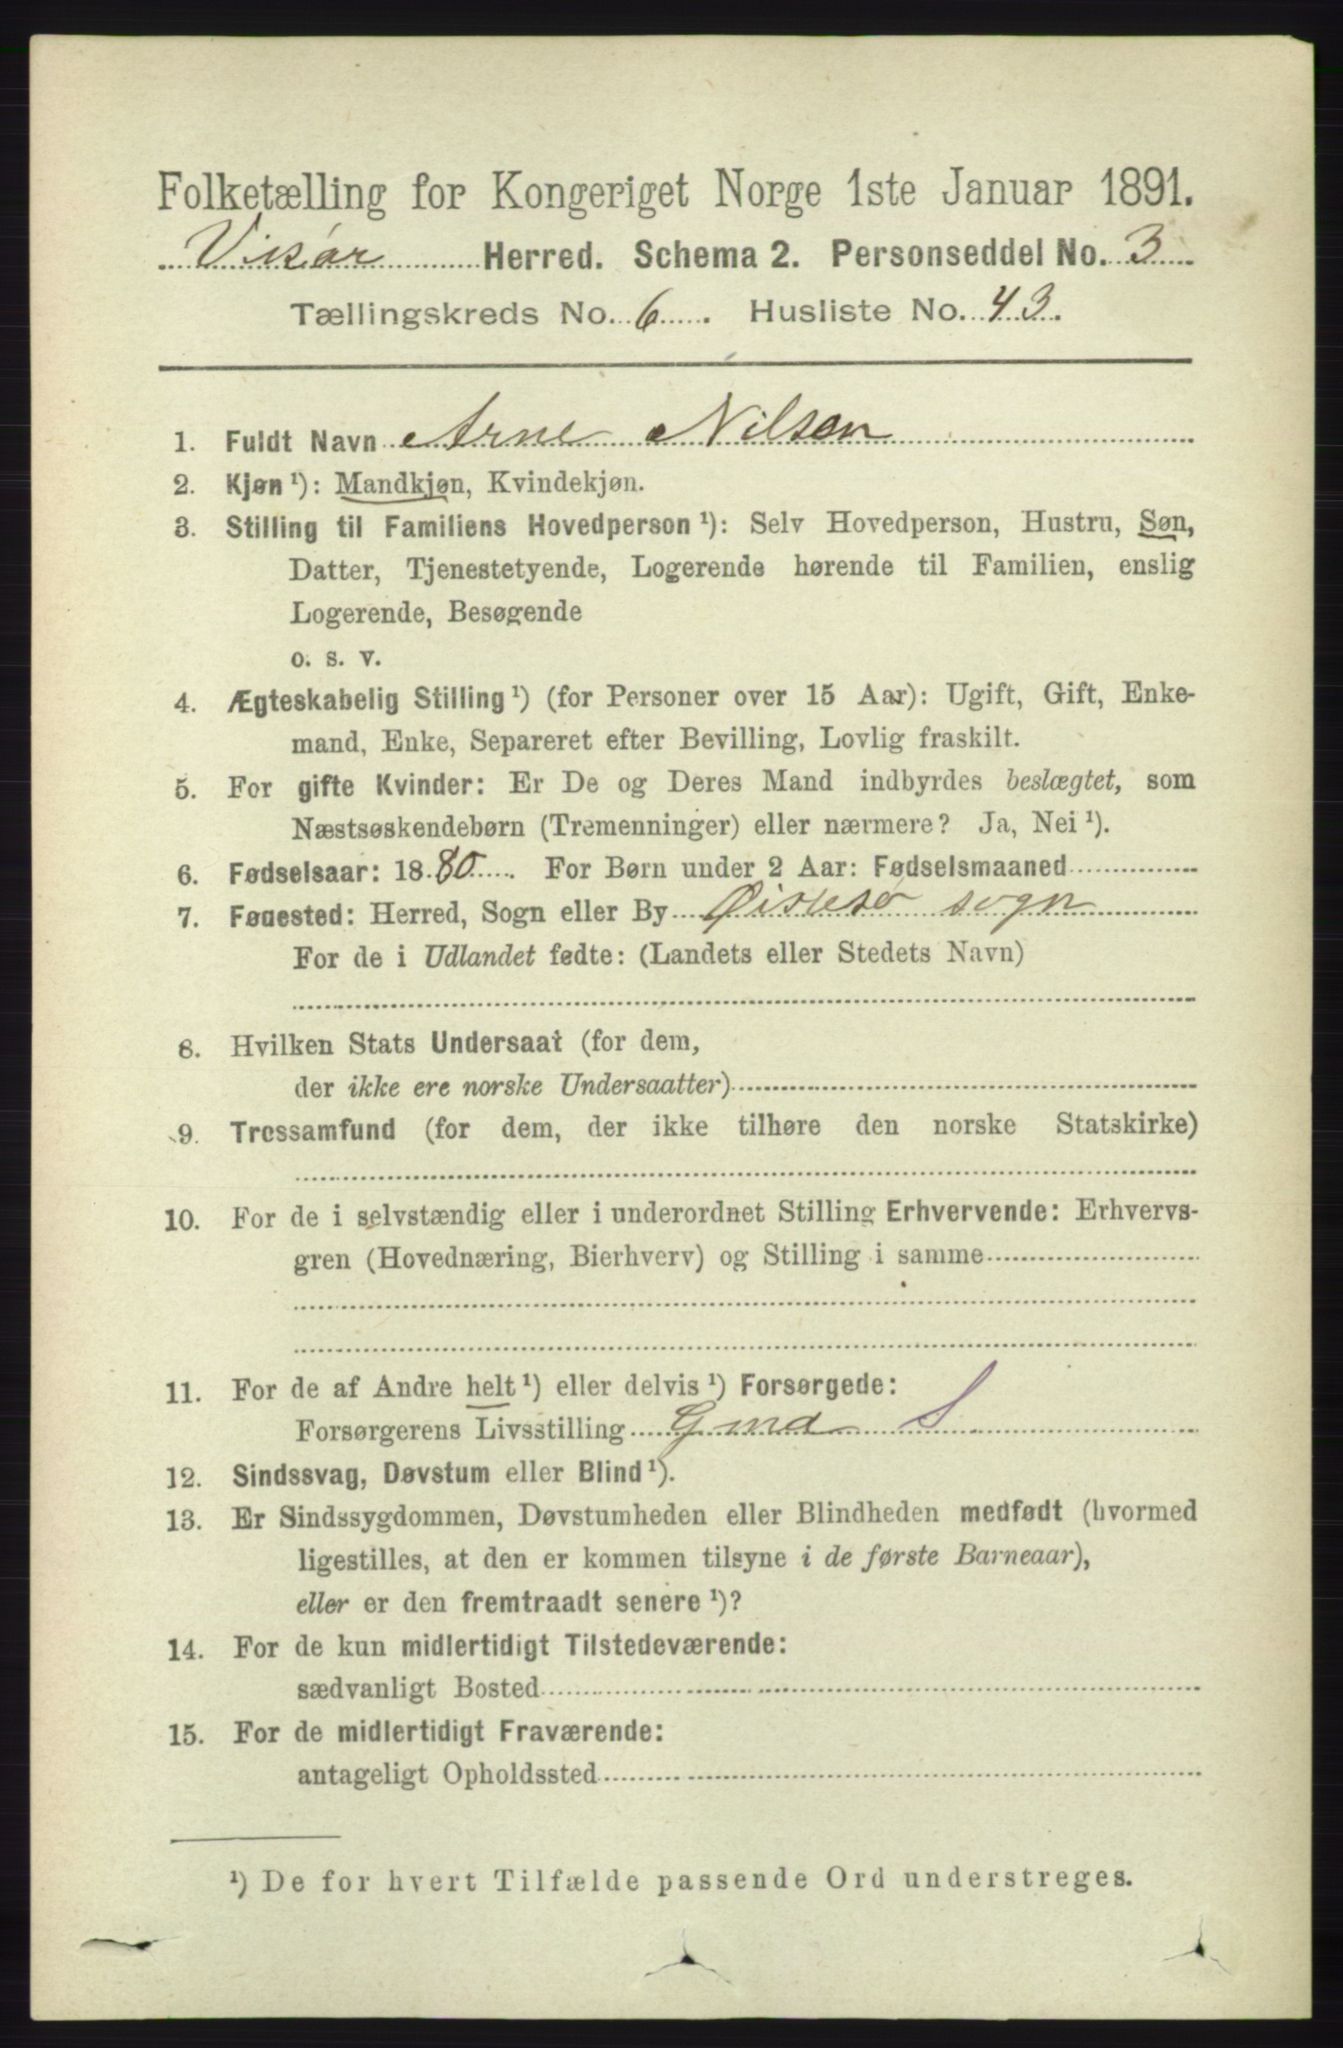 Folketælling for Kongeriget Norge 1ste Januar 1891.
Vikør Herred. Schema 2. Personseddel No. 3
Tællingskreds No. 6. Husliste No. 43.
1. Fuldt Navn Arne Nilsen
2. Kjøn ¹): Mandkjøn, Kvindekjøn.
3. Stilling til Familiens Hovedperson ¹): Selv Hovedperson, Hustru, Søn,
Datter, Tjenestetyende, Logerende hørende til Familien, enslig
Logerende, Besøgende
o. s. v.
4. Ægteskabelig Stilling ¹) (for Personer over 15 Aar): Ugift, Gift, Enke-
mand, Enke, Separeret efter Bevilling, Lovlig fraskilt.
5. For gifte Kvinder: Er De og Deres Mand indbyrdes beslægtet, som
Næstsøskendebørn (Tremenninger) eller nærmere? Ja, Nei ¹).
6. Fødselsaar: 1880. For Børn under 2 Aar: Fødselsmaaned
7. Fødested: Herred, Sogn eller By Øistesø sogn
For de i Udlandet fødte: (Landets eller Stedets Navn)
8. Hvilken Stats Undersaat (for dem,
der ikke ere norske Undersaatter)
9. Trossamfund (for dem, der ikke tilhøre den norske Statskirke)
10. For de i selvstændig eller i underordnet Stilling Erhvervende: Erhvervs-
gren (Hovednæring, Bierhverv) og Stilling i samme
11. For de af Andre helt ¹) eller delvis ¹) Forsørgede:
Forsørgerens Livsstilling Gmd S
12. Sindssvag, Døvstum eller Blind ¹).
13. Er Sindssygdommen, Døvstumheden eller Blindheden medfødt (hvormed
ligestilles, at den er kommen tilsyne i de første Barneaar),
eller er den fremtraadt senere ¹)?
14. For de kun midlertidigt Tilstedeværende:
sædvanligt Bosted
15. For de midlertidigt Fraværende:
antageligt Opholdssted
¹) De for hvert Tilfælde passende Ord understreges.